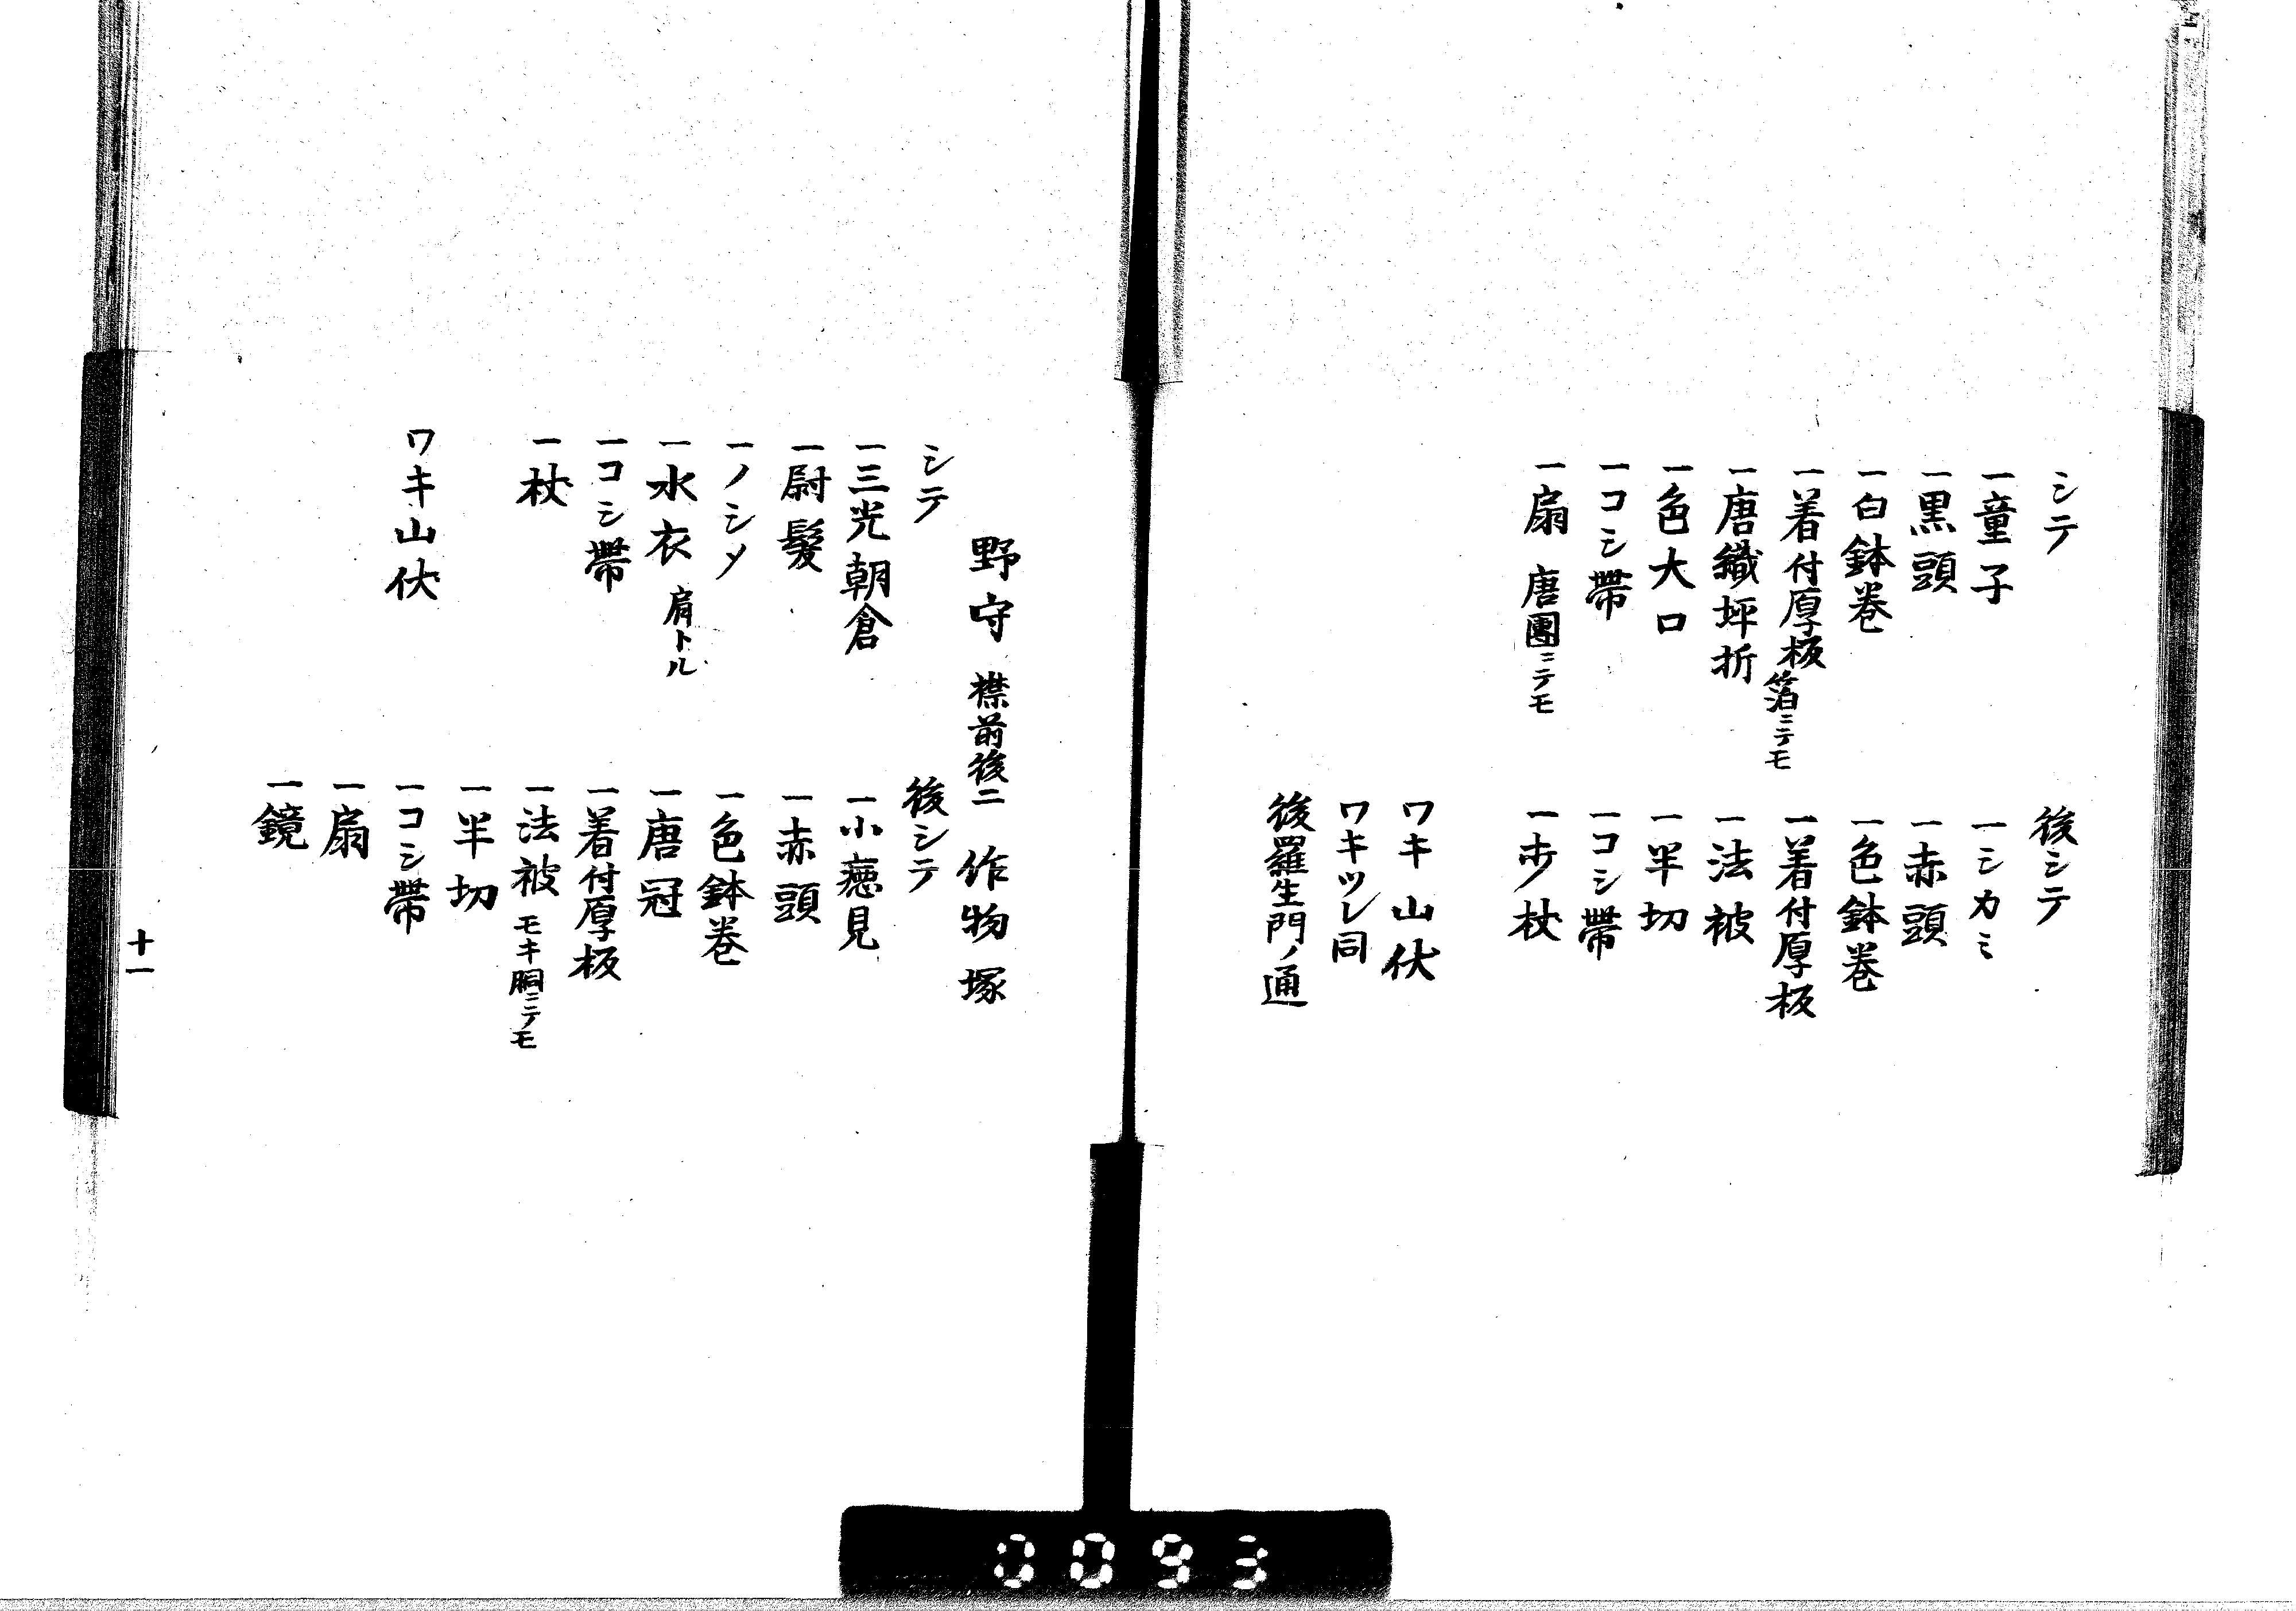 シテ
一童子
一黒頭
一白鉢巻
一着付厚板箔ニテモ
一唐織坪折
一色大口
一コシ帯
一扇 唐團ニテモ
後シテ
一シカミ
一赤頭
一色鉢巻
一着付厚板
一法被
一半切
一コシ帯
一歩杖
ワキ山伏
ワキツレ同
後羅生門ノ通
野守 襟前後二 作物塚
シテ
一三光朝倉
一尉髪
一ノシメ
一水衣 肩トル
一コシ帯
一杖
ワキ山伏
後シテ
一小癋見
一赤頭
一色鉢巻
一唐冠
一着付厚板
一法被 モキ胴ニテモ
一半切
一コシ帯
一扇
一鏡
十一
0093